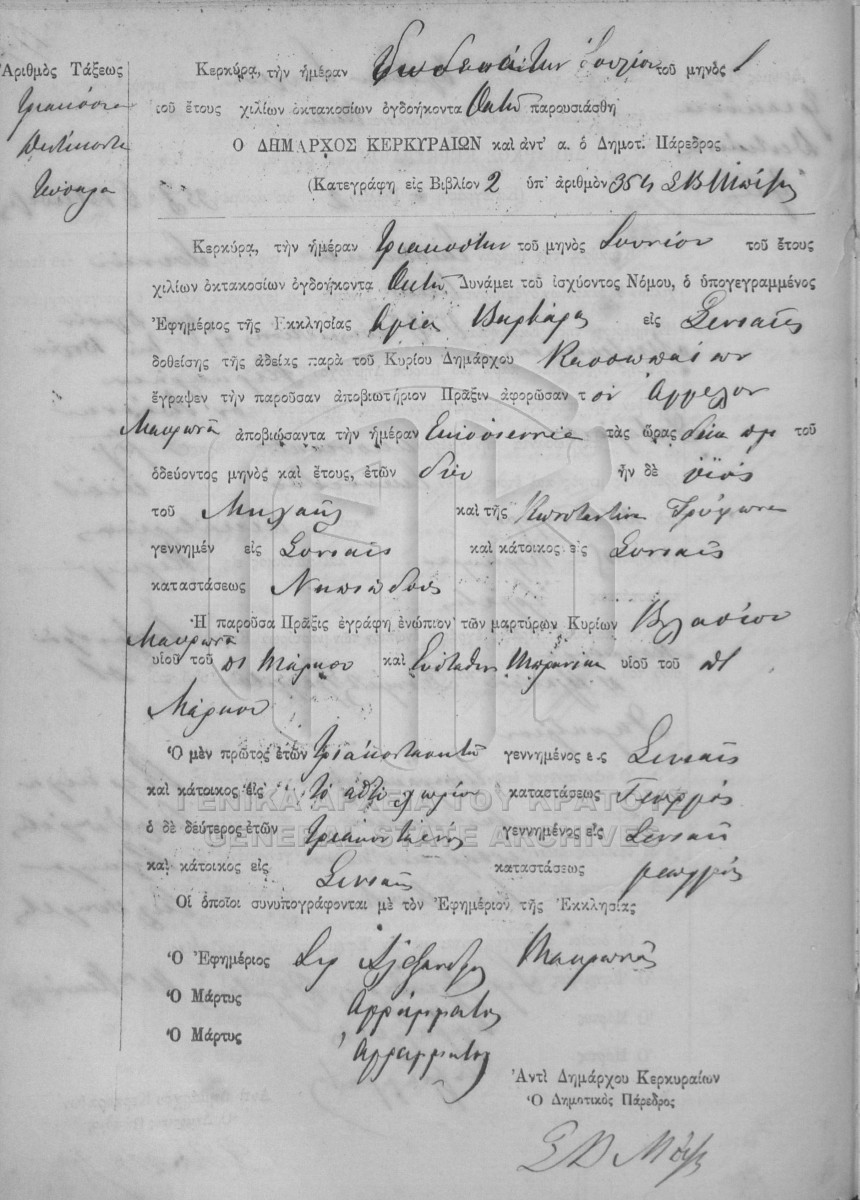 Ἀριθμὸς Τάξεως
Τριακόσια
Πεντήκοντα
Τέσσαρα
Κερκύρα, τὴν ἡμέραν Δωδεκάτην Ἰουλίου τοῦ μηνὸς
τοῦ ἔτους χιλίων ὀκτακοσίων ὀγδοήκοντα Ὀκτὼ παρουσιάσθη
Ο ΔΗΜΑΡΧΟΣ ΚΕΡΚΥΡΑΙΩΝ καὶ ἀντ' α. ὁ Δημοτ. Πάρεδρος
(Κατεγράφη εἰς Βιβλίον 2 ὑπ' ἀριθμὸν 354
Κερκύρα, τὴν ἡμέραν Τριακοστὴν τοῦ μηνὸς Ἰουνίου τοῦ ἔτους
χιλίων ὀκτακοσίων ὀγδοήκοντα Ὀκτὼ Δυνάμει τοῦ ἰσχύοντος Νόμου, ὁ ὑπογεγραμμένος
Ἐφημέριος τῆς Εκκλησίας Ἁγία Βαρβάρα εἰς Σινιαὶς
δοθείσης τῆς ἀδείας παρὰ τοῦ Κυρίου Δημάρχου Κασσωπαίων
ἔγραψεν τὴν παροῦσαν ἀποβιωτήριον Πρᾶξιν ἀφορῶσαν τὸν Ἄγγελον
Μαυρωνᾶ ἀποβιώσαντα τὴν ἡμέραν Εἰκοσιεννέα τὰς ὥρας δέκα πμ τοῦ
ὁδεύοντος μηνὸς καὶ ἔτους, ἐτῶν δύο ἦν δὲ υἱὸς
τοῦ Μιχαὴλ καὶ τῆς Κωνσταντίνα
γεννημέν εἰς Σινιαὶς καὶ κάτοικος εἰς Σινιαὶς
καταστάσεως Νηπιώδους
Ἡ παροῦσα Πρᾶξις ἐγράφη ἐνώπιον τῶν μαρτύρων Κυρίων Βλασίου
Μαυρωνᾶ υἱοῦ τοῦ πτ Μάρκου καὶ Εὐστάθιου υἱοῦ τοῦ πτ
Μάρκου
Ὁ μὲν πρῶτος ἐτῶν Τριάκοντα ὀκτὼ γεννημένος ε ς Σινιαὶς
καὶ κάτοικος εἰς τὸ αὐτὸ χωρίον καταστάσεως Γεωργὸς
ὁ δὲ δεύτερος ἐτῶν Τριάκοντα ἑνὸς γεννημένος εἰς Σινιαὶς
καὶ κάτοικος εἰς Σινιαὶς καταστάσεως γεωργὸς
Οἱ ὁποῖοι συνυπογράφονται μὲ τὸν Ἐφημέριον τῆς Ἐκκλησίας
Ὁ Ἐφημέριος Ἱερ Ἀλέξανδρος Μαυρωνᾶς
Ὁ Μάρτυς Ἀγράμματος
Ὁ Μάρτυς Ἀγράμματος
Ἀντὶ Δημάρχου Κερκυραίων
Ὁ Δημοτικὸς Πάρεδρος
ΓΕΝΙΚΑ ΑΡΧΕΙΑ ΤΟΥ ΚΡΑΤΟΥΣ
GENERAL STATE ARCHIVES